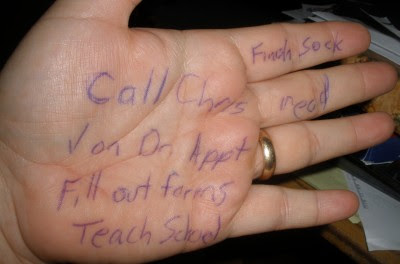 Finch Sock
need
Call Chris
on Dr Appt
Fill out forms
Teach School